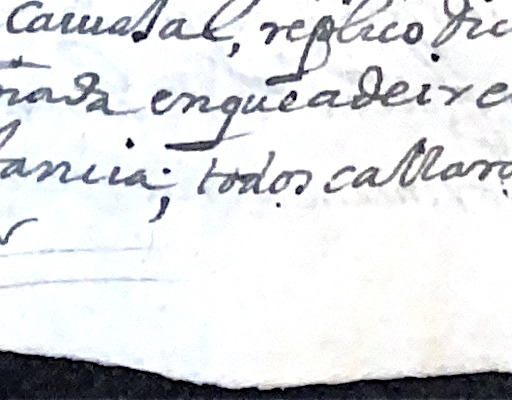 Camatal, replico
nada enqueadeire
ancia; todos callaro